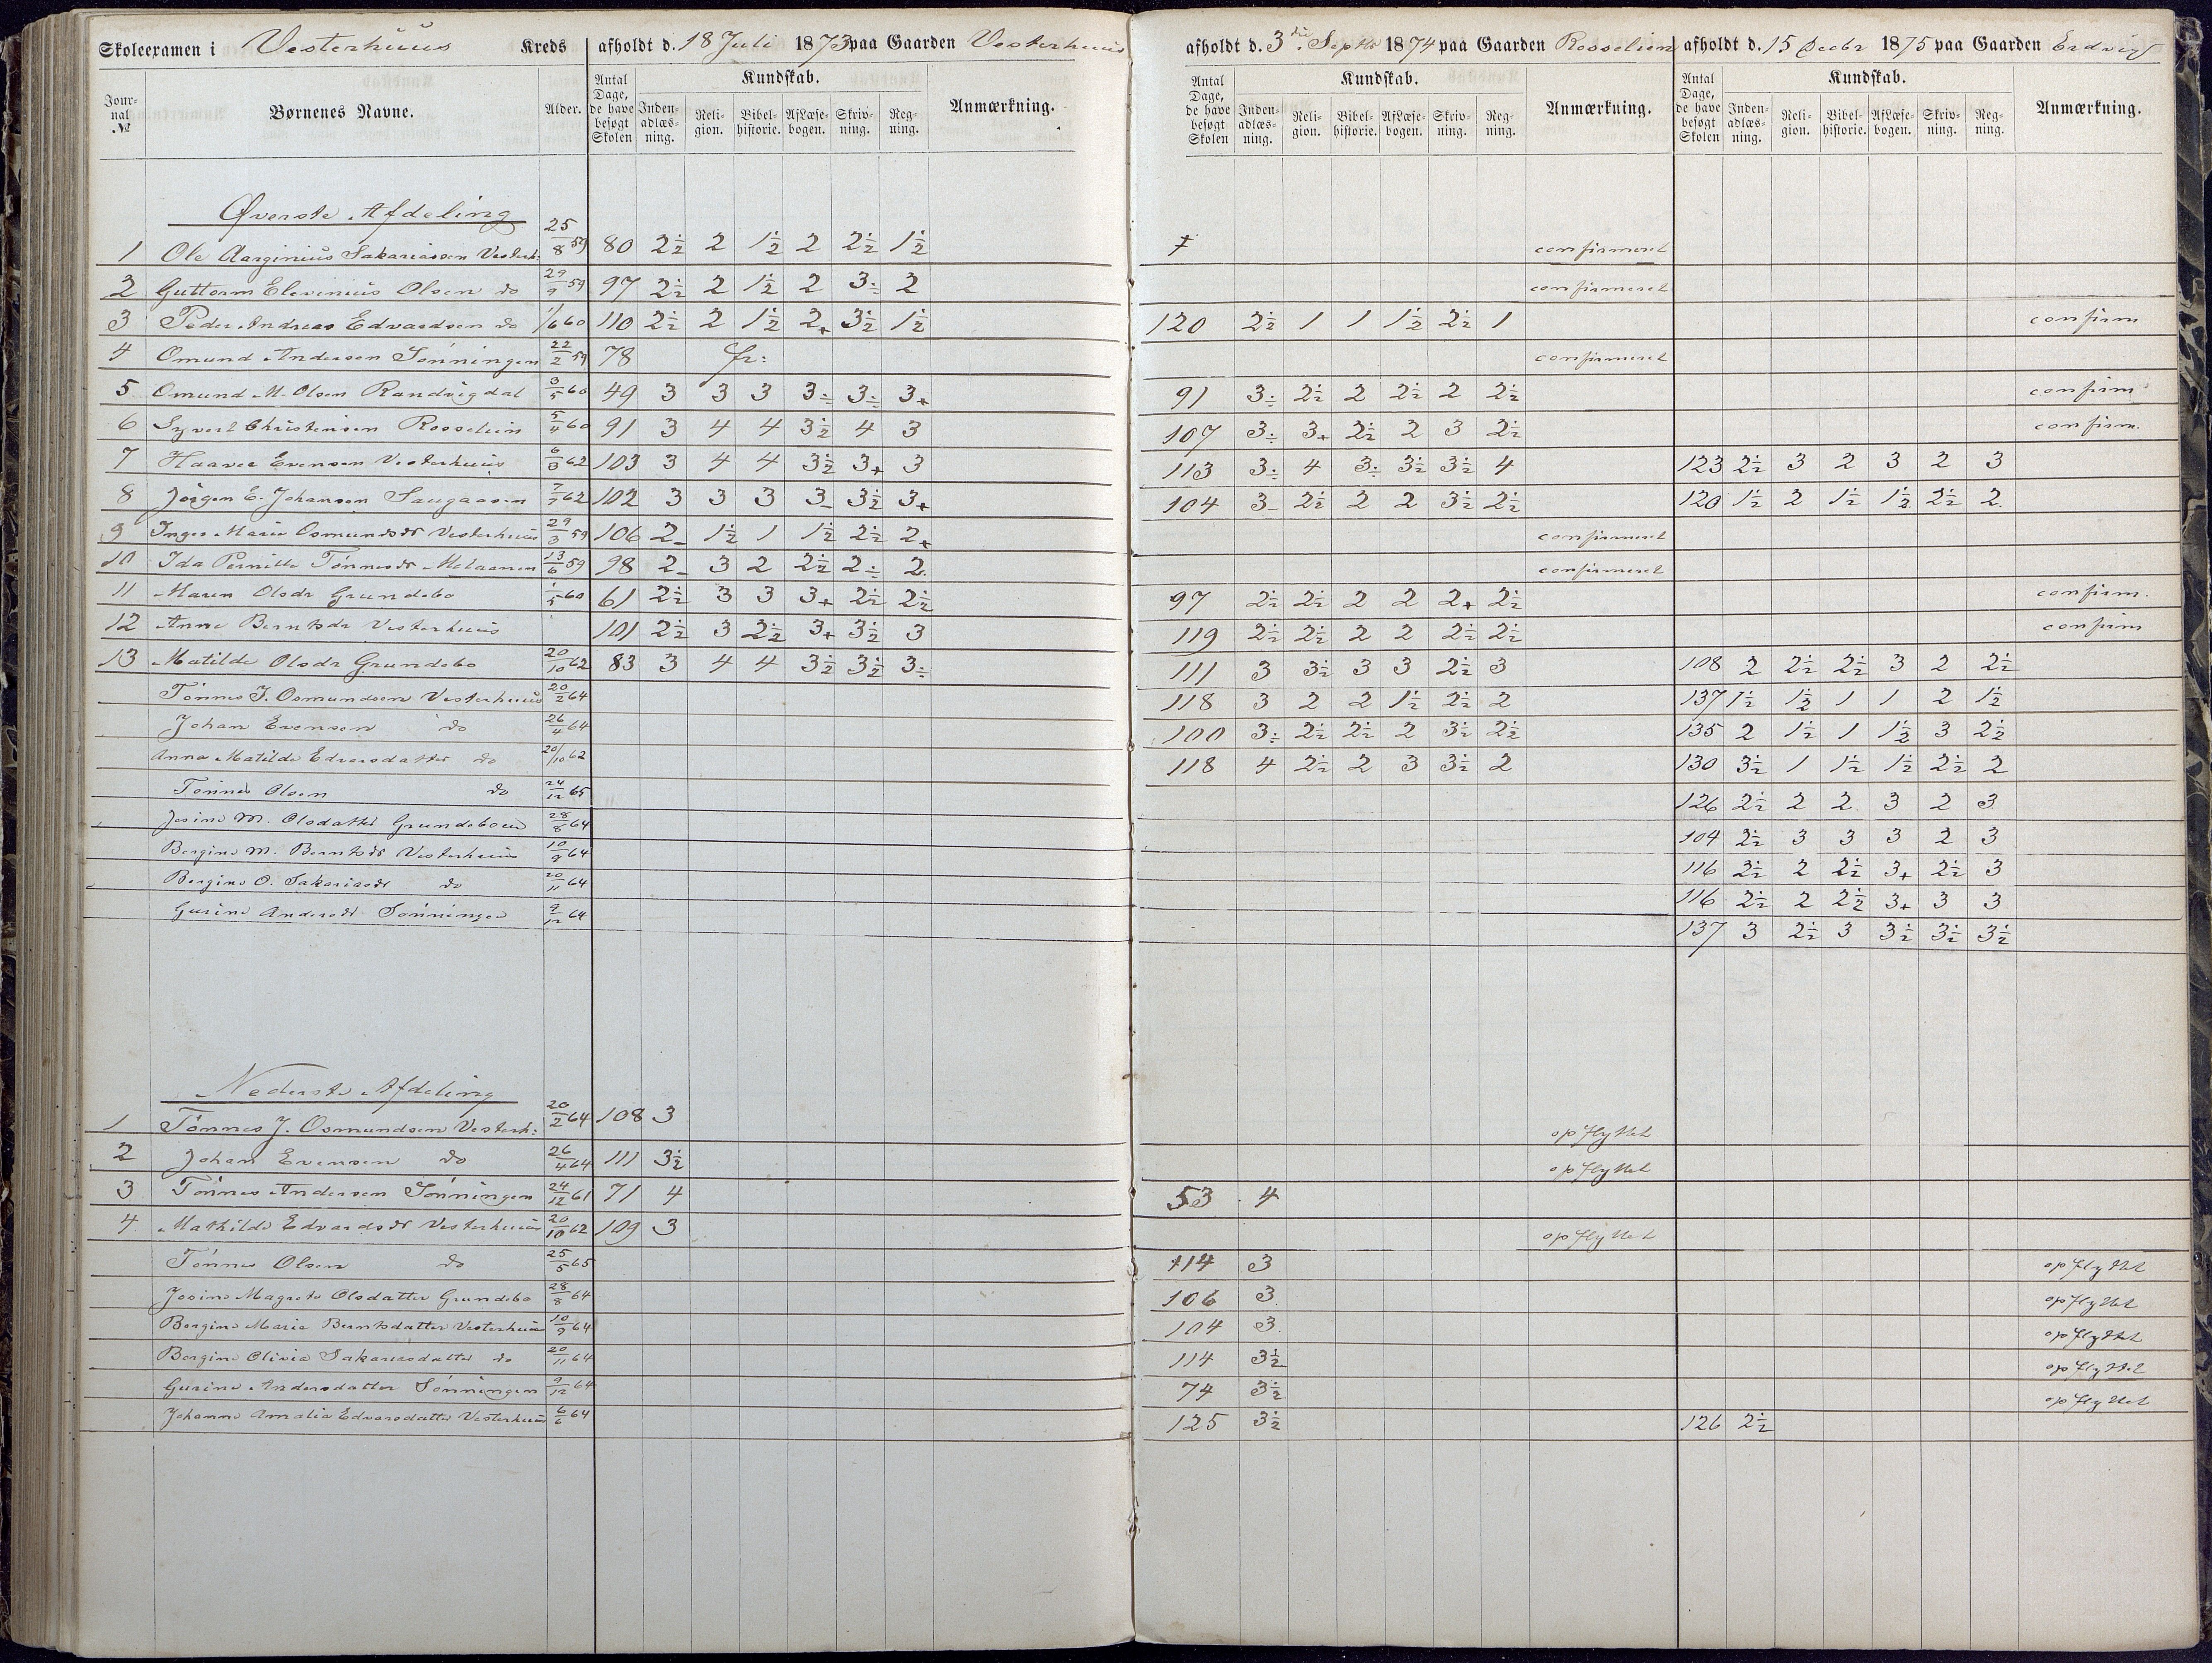 Skoleexamen i Vesterhuus Kreds afholdt d. 18 Juli 1873 paa Gaarden Vesterhuus afholdt d. 3die Septbr 1874 paa Gaarden Rosselien afholdt d. 15 Decbr 1875 paa Gaarden
Journal № Børnenes Navne. Alder. Antal Dage, de have besøgt Skolen Kundskab. Indenadlæsning. Religion. Bibelhistorie. Af Læsebogen. Skrivning. Regning. Anmærkning. Antal Dage, de have besøgt Skolen Kundskab. Indenadlæsning. Religion. Bibelhistorie. Af Læsebogen. Skrivning. Regning. Anmærkning. Antal Dage, de have besøgt Skolen Kundskab. Indenadlæsning. Religion. Bibelhistorie. Af Læsebogen. Skrivning. Regning. Anmærkning.
Øverste Afdeling
1 Ole Aarginius Sakariassen Vesterh: 25/8 59 80 2½ 2 1½ 2 2½ 1½ confirmeret
2 Guttorm Elevinius Olsen do 29/9 59 97 2½ 2 1½ 2 3÷ 2 confirmeret
3 Peder Andreas Edvardsen do 1/6 60 110 2½ 2 1½ 2+ 3½ 1½ 120 2½ 1 1 1½ 2½ 1 confirm
4 Omund Andersen Sønningen 22/2 59 78 fr: confirmeret
5 Omund M. Olsen Randvigdal 3/5 60 49 3 3 3 3÷ 3÷ 3+ 91 3÷ 2½ 2 2½ 2 2½ confirm
6 Syvert Christensen Rosselien 5/4 60 91 3 4 4 3½ 4 3 107 3÷ 3+ 2½ 2 3 2½ confirm.
7 Haaver Evensen Vesterhuus 6/3 62 103 3 4 4 3½ 3+ 3 113 3÷ 4 3÷ 3½ 3½ 4 123 2½ 3 2 3 2 3
8 Jørgen E. Johansen Saugaasen 7/7 62 102 3 3 3 3- 3½ 3+ 104 3- 2½ 2 2 3½ 2½ 120 1½ 2 1½ 1½ 2½ 2
9 Inger Marie Osmundsdr Vesterhuus 29/3 59 106 2- 1½ 1 1½ 2½ 2+ confirmeret
10 Ida Pernille Tønnesdr 13/6 59 98 2- 3 2 2½ 2÷ 2 confirmeret
11 Maren Olsdr Grundebo 1/5 60 61 2½ 3 3 3+ 2½ 2½ 97 2½ 2½ 2 2 2+ 2½ confirm.
12 Anne Berntsdr Vesterhuus 101 2½ 3 2½ 3+ 3½ 3 119 2½ 2½ 2 2 2½ 2½ confirm
13 Matilde Olsdr Grundebo 20/10 62 83 3 4 4 3½ 3½ 3÷ 111 3 3½ 3 3 2½ 3 108 2 2½ 2½ 3 2 2½
Tønnes J. Osmundsen Vesterhuus 20/2 64 118 3 2 2 1½ 2½ 2 137 1½ 1½ 1 1 2 1½
Johan Evensen do 26/4 64 100 3÷ 2½ 2½ 2 3½ 2½ 135 2 1½ 1 1½ 3 2½
Anna Matilde Edvarsdatter do 20/10 62 118 4 2½ 2 3 3½ 2 130 3½ 1 1½ 1½ 2½ 2
Tønnes Olsen do 24/12 65 126 2½ 2 2 3 2 3
Josine M. Olsdatter Grundeboen 28/8 64 104 2½ 3 3 3 2 3
Bergine M. Berntsdr Vesterhuus 10/9 64 116 3½ 2 2½ 3+ 2½ 3
Bergine O. Sakariasdr do 20/11 64 116 2½ 2 2½ 3+ 3 3
Gurine Andersdr Sønningen 9/12 64 137 3 2½ 3 3½ 3½ 3½
Nederste Afdeling
1 Tønnes J. Osmundsen Vesterh: 20/2 64 108 3 opflyttet
2 Johan Evensen do 26/4 64 111 3½ opflyttet
3 Tønnes Andersen Sønningen 24/12 61 71 4 53 4
4. Mathilde Edvardsdr Vesterhuus 20/10 62 109 3 opflyttet
Tønnes Olsen do 25/5 65 114 3 opflyttet
Josine Magrete Olsdatter Grundebo 28/8 64 106 3 opflyttet
Bergine Marie Berntsdatter Vesterhuus 10/9 64 104 3 opflyttet
Bergine Olivia Sakariasdatter do 20/11 64 114 3½ opflyttet
Gurine Andersdatter Sønningen 9/12 64 74 3½ opflyttet
Johanne Amalia Edvarsdatter Vesterhuus 6/6 64 125 3½ 126 2½